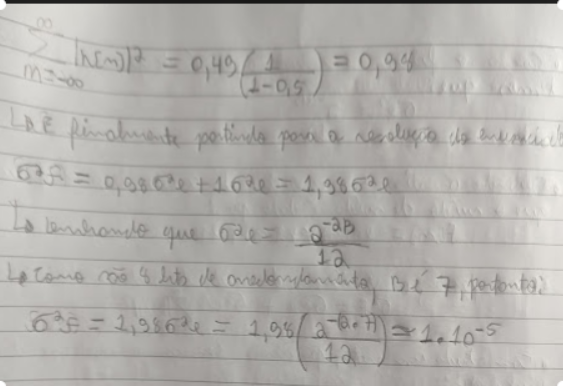 ∞
∑ |h[m]|² = 0,49 (1/(1-0,5)) = 0,98
m=-∞
↳ E finalmente partindo para a resolução do
σ²f = 0,98σ²e + 1σ²e = 1,98σ²e
↳ Lembrando que σ²e = 2^-2B/12
↳ Como são 8 bits de, B é 7, portanto:
σ²f = 1,98σ²e = 1,98 (2^-(2.7)/12) ≃ 1.10^-5